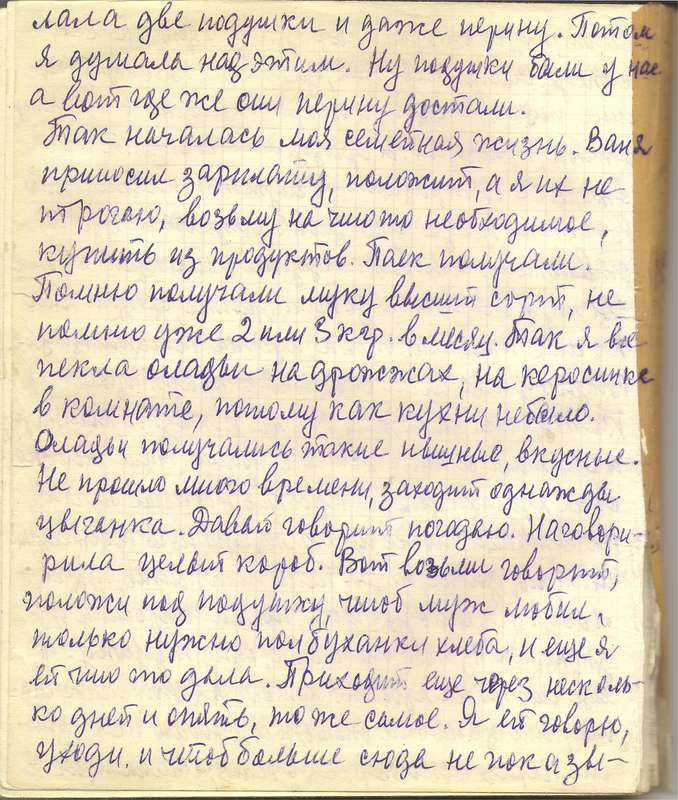 лала две подушки и даже перину. Потом
я думала над этим. Ну подушки были у нас
а вот где же они перину достали.
Так началась моя семейная жизнь. Ваня
приносил зарплату, положит, а я их не
трогаю, возьму на что то необходимое,
купить из продуктов. Паек получали.
Помню получали муку высший сорт, не
помню уже 2 или 3 кгр. в месяц. Так я всё
пекла оладьи на дрожжах, на керосинке
в комнате, потому как кухни небыло.
Оладьи получались такие пышные, вкусные.
Не прошло много времени, заходит однажды
цыганка. Давай говорит погадаю. Наговори-
рила целый короб. Вот возьми говорит,
положи под подушку, чтоб муж любил,
только нужно полбуханки хлеба, и еще я
ей что то дала. Приходит еще через несколь-
ко дней и опять, тоже самое. Я ей говорю,
уходи, и чтоб больше сюда не показы-